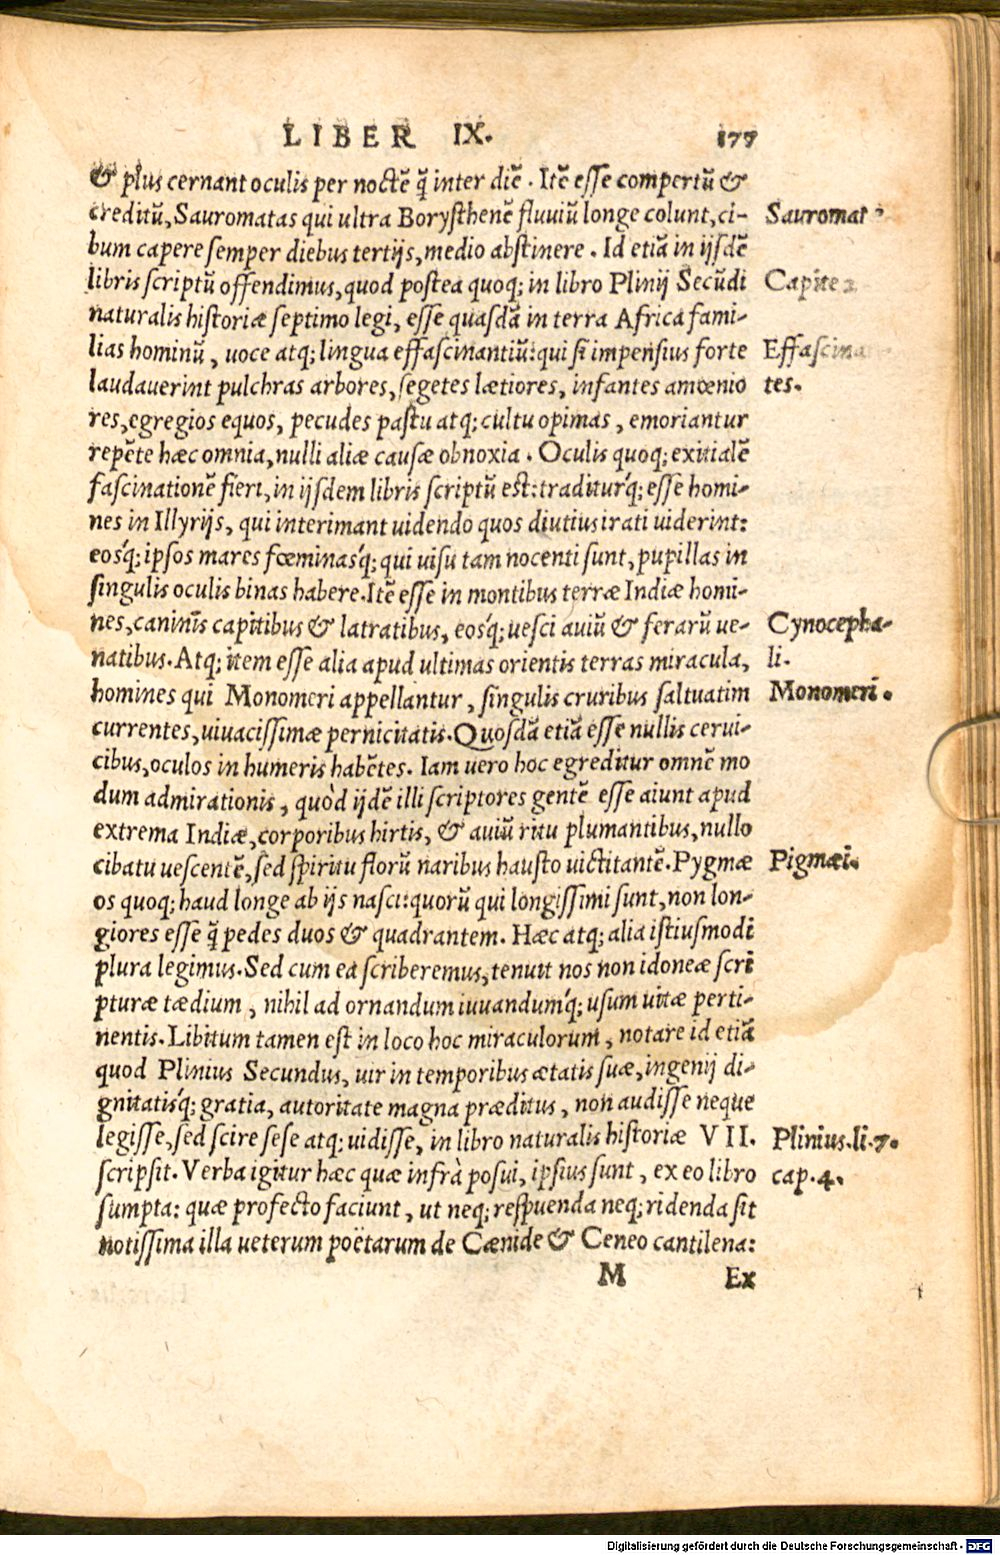 LIBER IX. 177
& plus cernant oculis per noctē q̃ inter diē. Itē esse compertū &
creditū, Sauromatas qui ultra Borysthenē fluuiū longe colunt, ci-
Sauromat
bum capere semper diebus tertijs, medio abstinere. Id etiā in ijsdē
libris scriptū offendimus, quod postea quoq; in libro Plinij Secūdi
Capite 2
naturalis historiæ septimo legi, esse quasdā in terra Africa fami-
lias hominū, uoce atq; lingua effascinantiū: qui si impensius forte
Effascinan
laudauerint pulchras arbores, segetes lætiores, infantes amœnio
tes.
res, egregios equos, pecudes pastu atq; cultu opimas, emoriantur
repēte hæc omnia, nulli aliæ causæ obnoxia. Oculis quoq; exitialē
fascinationē fieri, in ijsdem libris scriptū est: tradituŕq; esse homi-
nes in Illyrijs, qui interimant uidendo quos diutius irati uiderint:
eosq́; ipsos mares fœminasq́; qui uisu tam nocenti sunt, pupillas in
singulis oculis binas habere. Itē esse in montibus terræ Indiæ homi-
nes, caninis̄ capitibus & latratibus, eosq́; uesci auiū & ferarū ue-
Cynocepha-
natibus. Atq; item esse alia apud ultimas orientis terras miracula,
li.
homines qui Monomeri appellantur, singulis cruribus saltuatim
Monomeri.
currentes, uiuacissimæ pernicitatis. Quosdā etiā esse nullis cerui-
cibus, oculos in humeris habētes. Iam uero hoc egreditur omnē mo
dum admirationis, quòd ijdē illi scriptores gentē esse aiunt apud
extrema Indiæ, corporibus hirtis, & auiū ritu plumantibus, nullo
cibatu uescentē, sed spiritu florū naribus hausto uictitantē. Pygmæ
Pigmæi.
os quoq; haud longe ab ijs nasci: quorū qui longissimi sunt, non lon-
giores esse q̃ pedes duos & quadrantem. Hæc atq; alia istiusmodi
plura legimus. Sed cum ea scriberemus, tenuit nos non idoneæ scri
pturæ tædium, nihil ad ornandum iuuandumq́; usum uitæ perti-
nentis. Libitum tamen est in loco hoc miraculorum, notare id etiā
quod Plinius Secundus, uir in temporibus ætatis suæ, ingenij di-
gnitatisq́; gratia, autoritate magna præditus, non audisse neque
legisse, sed scire sese atq; uidisse, in libro naturalis historiæ VII.
Plinius. li. 7.
scripsit. Verba igitur hæc quæ infrà posui, ipsius sunt, ex eo libro
cap. 4.
sumpta: quæ profecto faciunt, ut neq; respuenda neq; ridenda sit
notissima illa ueterum poëtarum de Cænide & Ceneo cantilena:
M Ex
Digitalisierung gefördert durch die Deutsche Forschungsgemeinschaft - DFG